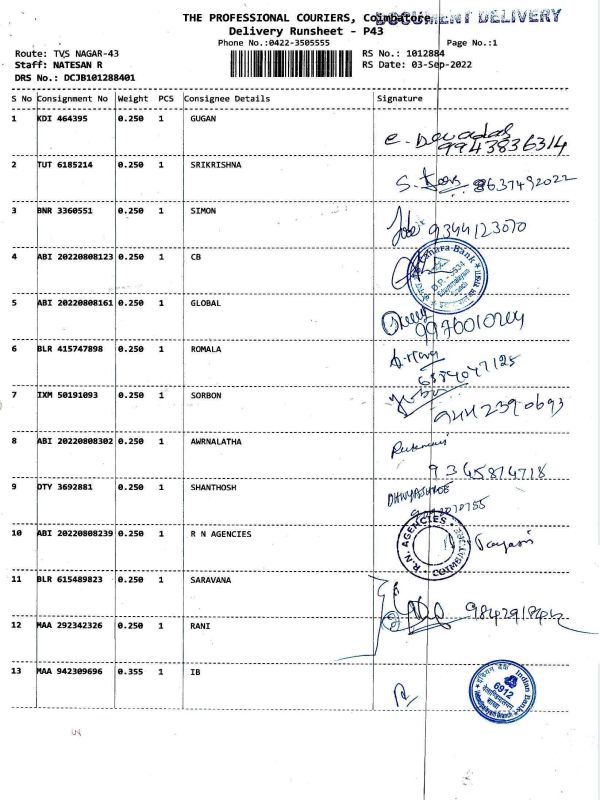 THE PROFESSIONAL COURIERS, Coimbatore
DOCUMENT DELIVERY
Delivery Runsheet - P43
Phone No.:0422-3505555
Page No.:1
Route: TVS NAGAR-43
RS No.: 1012884
Staff: NATESAN R
RS Date: 03-Sep-2022
DRS No.: DCJB101288401
S No Consignment No Weight PCS Consignee Details Signature
1 KDI 464395 0.250 1 GUGAN
9943836314
2 TUT 6185214 0.250 1 SRIKRISHNA
8637492022
3 BNR 3360551 0.250 1 SIMON
9344123070
4 ABI 20220808123 0.250 1 CB
Canara Bank
5 ABI 20220808161 0.250 1 GLOBAL
6 BLR 415747898 0.250 1 ROMALA
7 IXM 50191093 0.250 1 SORBON
9442390693
8 ABI 20220808302 0.250 1 AWRNALATHA
9 DTY 3692881 0.250 1 SHANTHOSH
10 ABI 20220808239 0.250 1 R N AGENCIES
R.N. AGENCIES
11 BLR 615489823 0.250 1 SARAVANA
12 MAA 292342326 0.250 1 RANI
13 MAA 942309696 0.355 1 IB
Indian Bank
6912